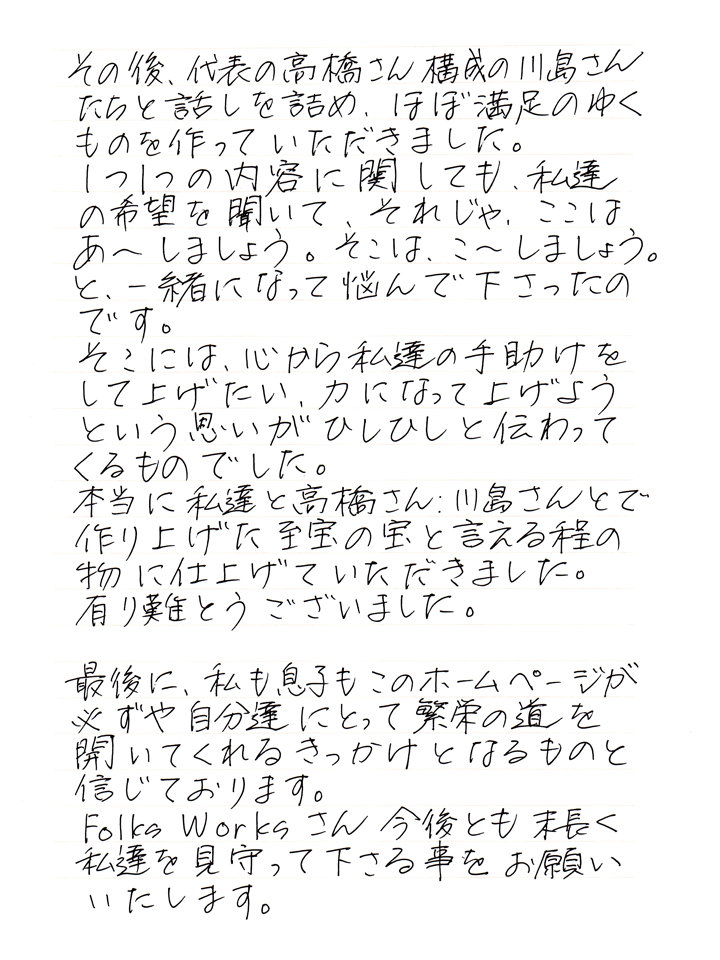 その後、代表の高橋さん構成の川島さん
たちと話しを詰め、ほぼ満足のゆく
ものを作っていただきました。
1つ1つの内容に関しても、私達
の希望を聞いて、それじゃ、ここは
あ～しましょう。そこは、こ～しましょう。
と、一緒になって悩んで下さったの
です。
そこには、心から私達の手助けを
して上げたい、力になって上げよう
という思いがひしひしと伝わって
くるものでした。
本当に私達と高橋さん:川島さんとで
作り上げた至宝の宝と言える程の
物に仕上げていただきました。
有り難とうございました。
最後に、私も息子もこのホームページが
必ずや自分達にとって繁栄の道を
開いてくれるきっかけとなるものと
信じております。
Folks Worksさん今後とも末長く
私達を見守って下さる事をお願い
いたします。